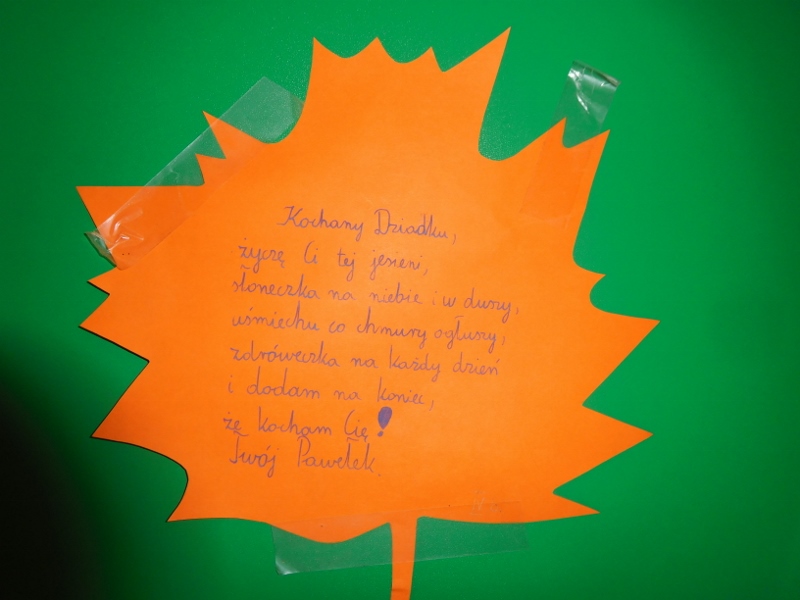 Kochany Dziadku,
życzę Ci tej jesieni,
słoneczka na niebie i w duszy,
uśmiechu co chmury ogłuszy,
zdróweczka na każdy dzień
i dodam na koniec,
żę kocham Cię!
Twój Pawełek.